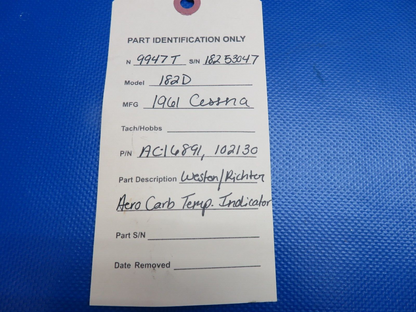 PART IDENTIFICATION ONLY
N 9947T S/N 18253047
Model 182D
MFG 1961 Cessna
Tach/Hobbs
P/N AC-16891, 102130
Part Description Weston/Richter
Aero Carb Temp. Indicator
Part S/N
Date Removed